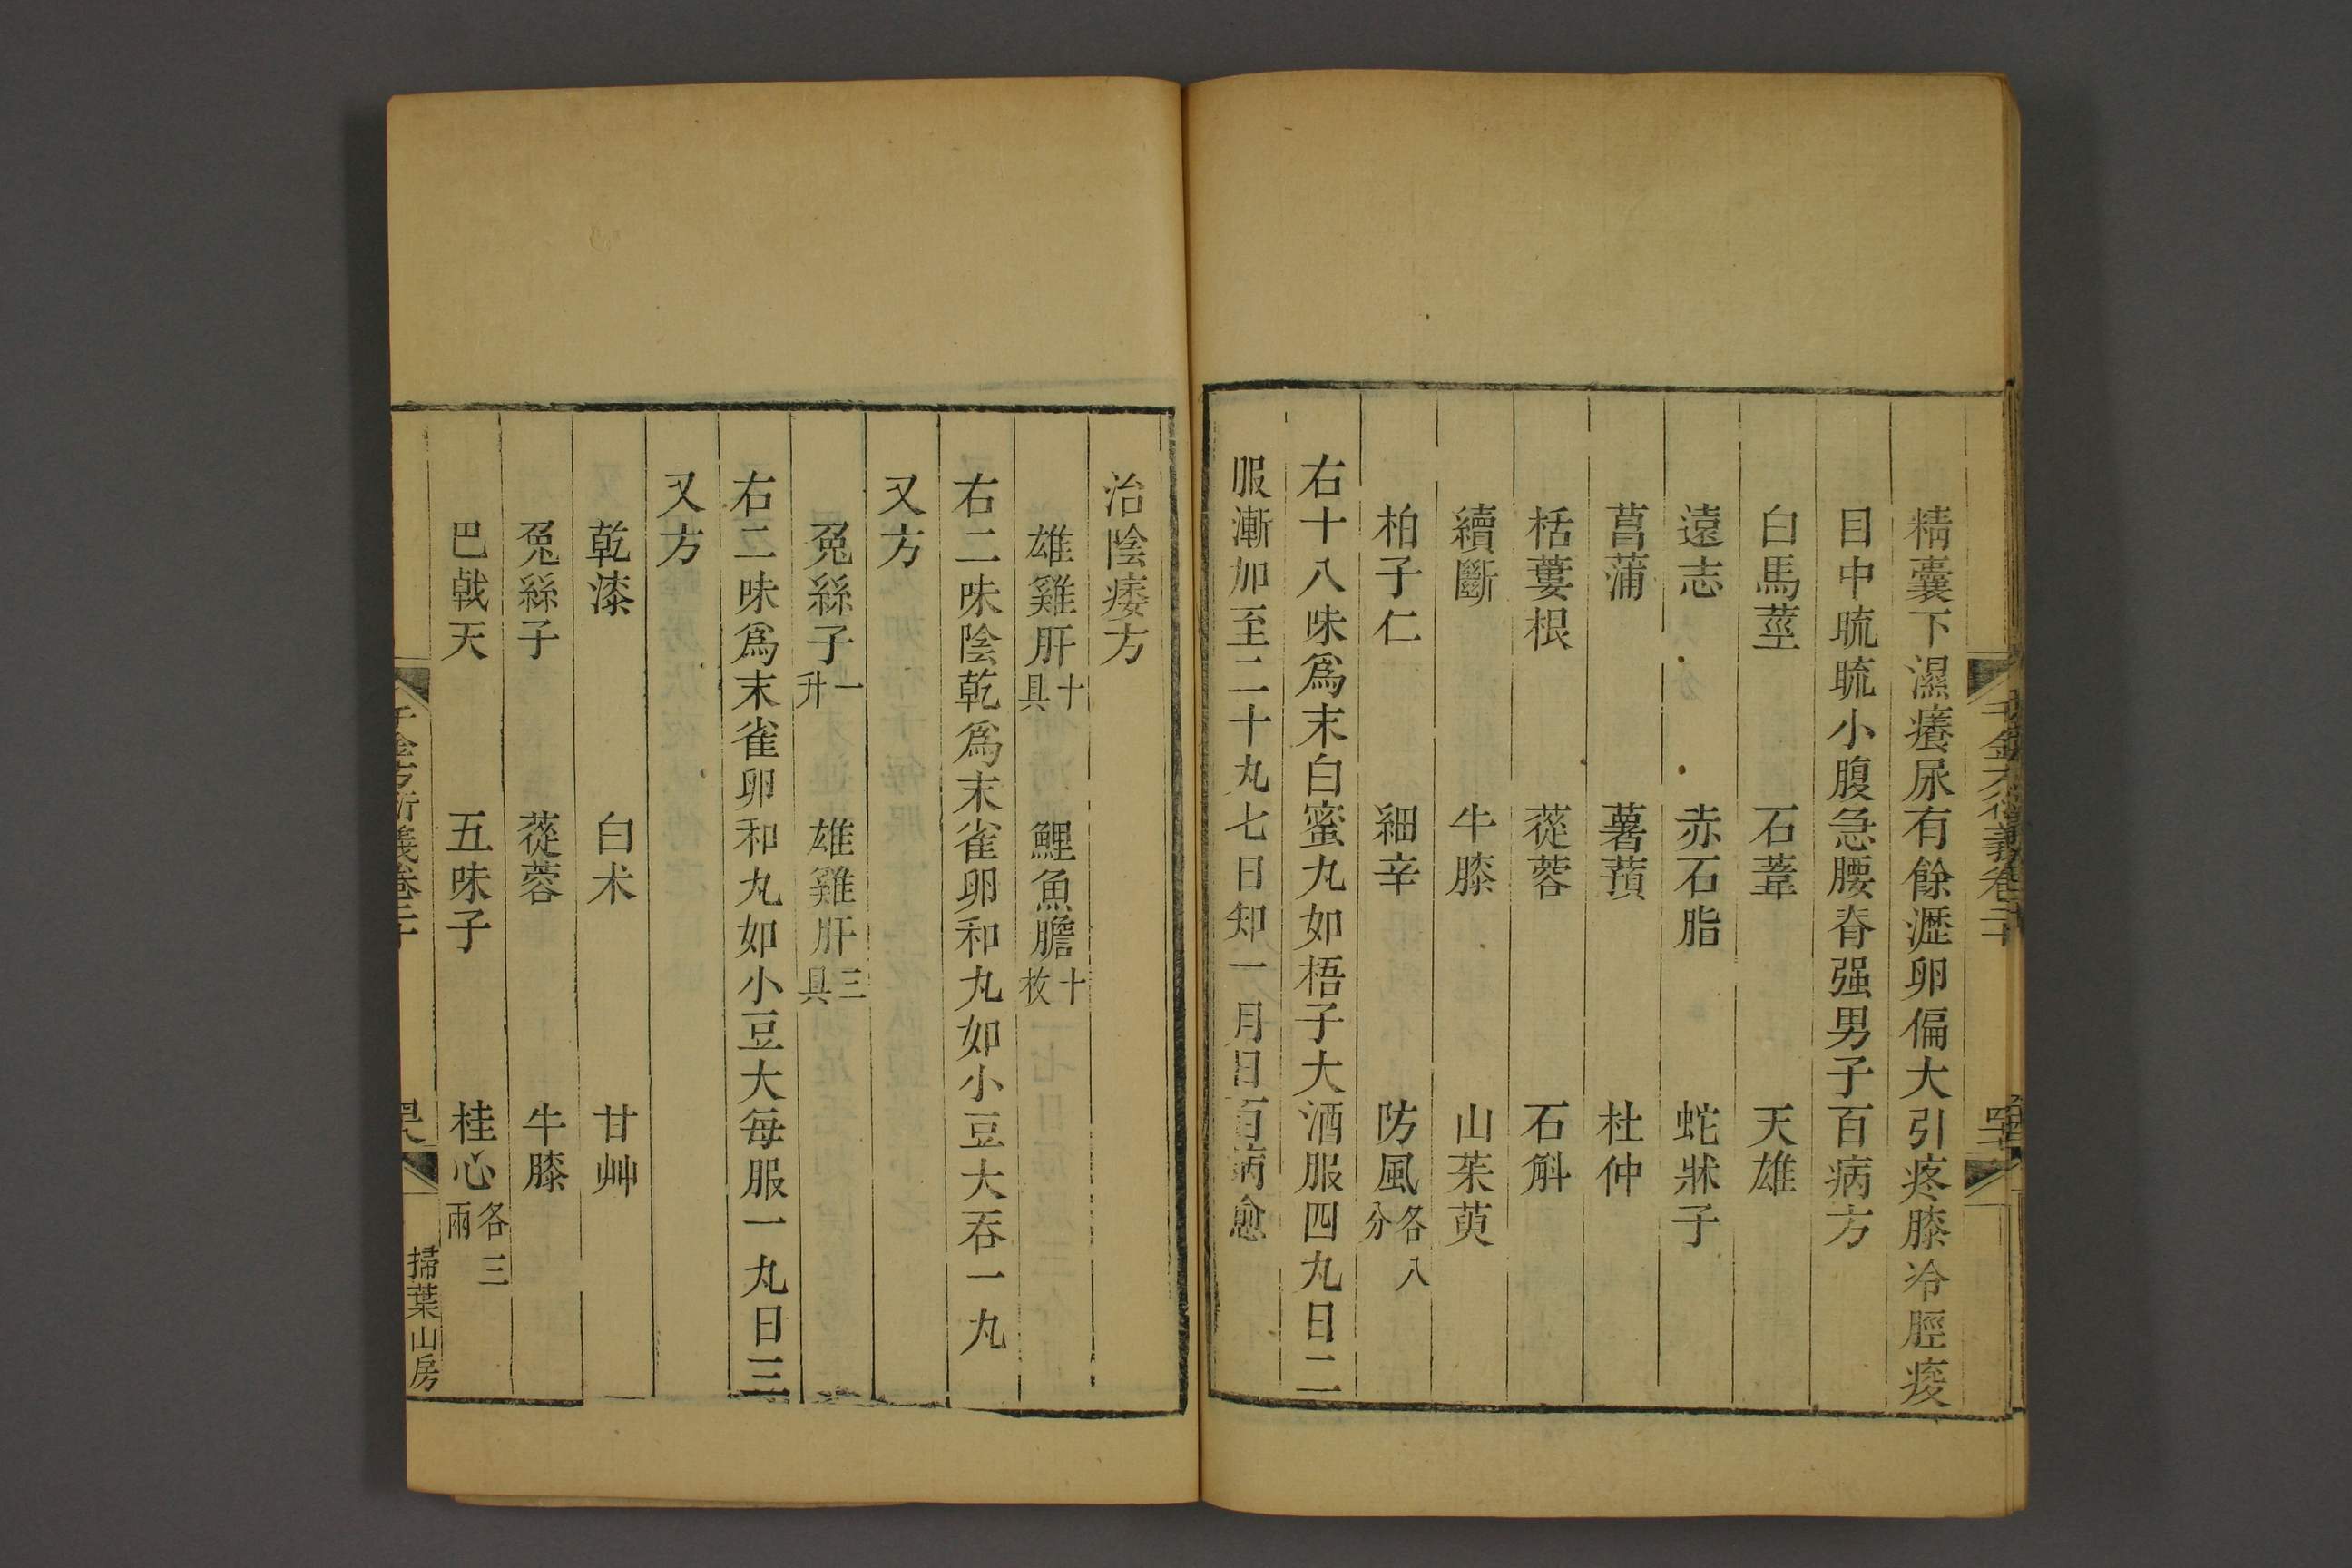 精囊下濕癢尿有餘瀝卵偏大引疼膝冷脛痠
目中䀮䀮小腹急腰脊强男子百病方
白馬莖 石葦 天雄
遠志 赤石脂 蛇牀子
菖蒲 薯蕷 杜仲
栝蔞根 蓯蓉 石斛
續斷 牛膝 山茱萸
柏子仁 細辛 防風各八分
右十八味爲末白蜜丸如梧子大酒服四丸日二
服漸加至二十丸七日知一月日百病愈
治陰痿方
雄雞肝十具 鯉魚膽十枚
右二味陰乾爲末雀卵和丸如小豆大吞一丸
又方
兔絲子一升 雄雞肝三具
右二味爲末雀卵和丸如小豆大每服一丸日三
又方
乾漆 白朮 甘艸
兔絲子 蓯蓉 牛膝
巴戟天 五味子 桂心各三兩
千金方衍義卷二十
掃葉山房